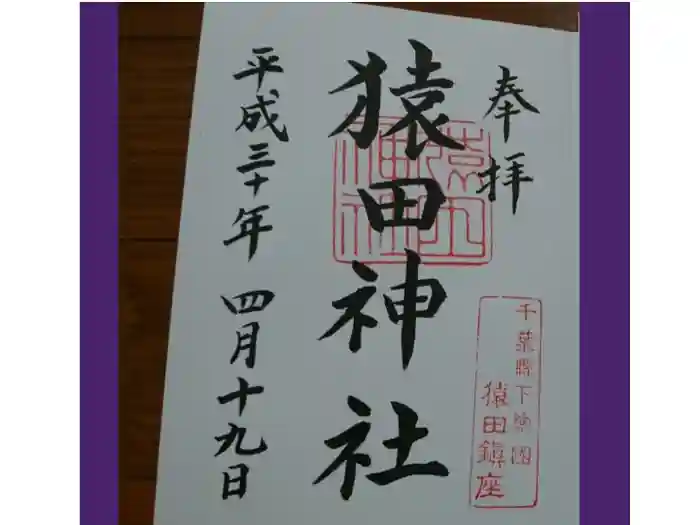 奉拝
猿田神社
平成三十年 四月十九日
千葉縣下総国
猿田鎮座
猿田
神社